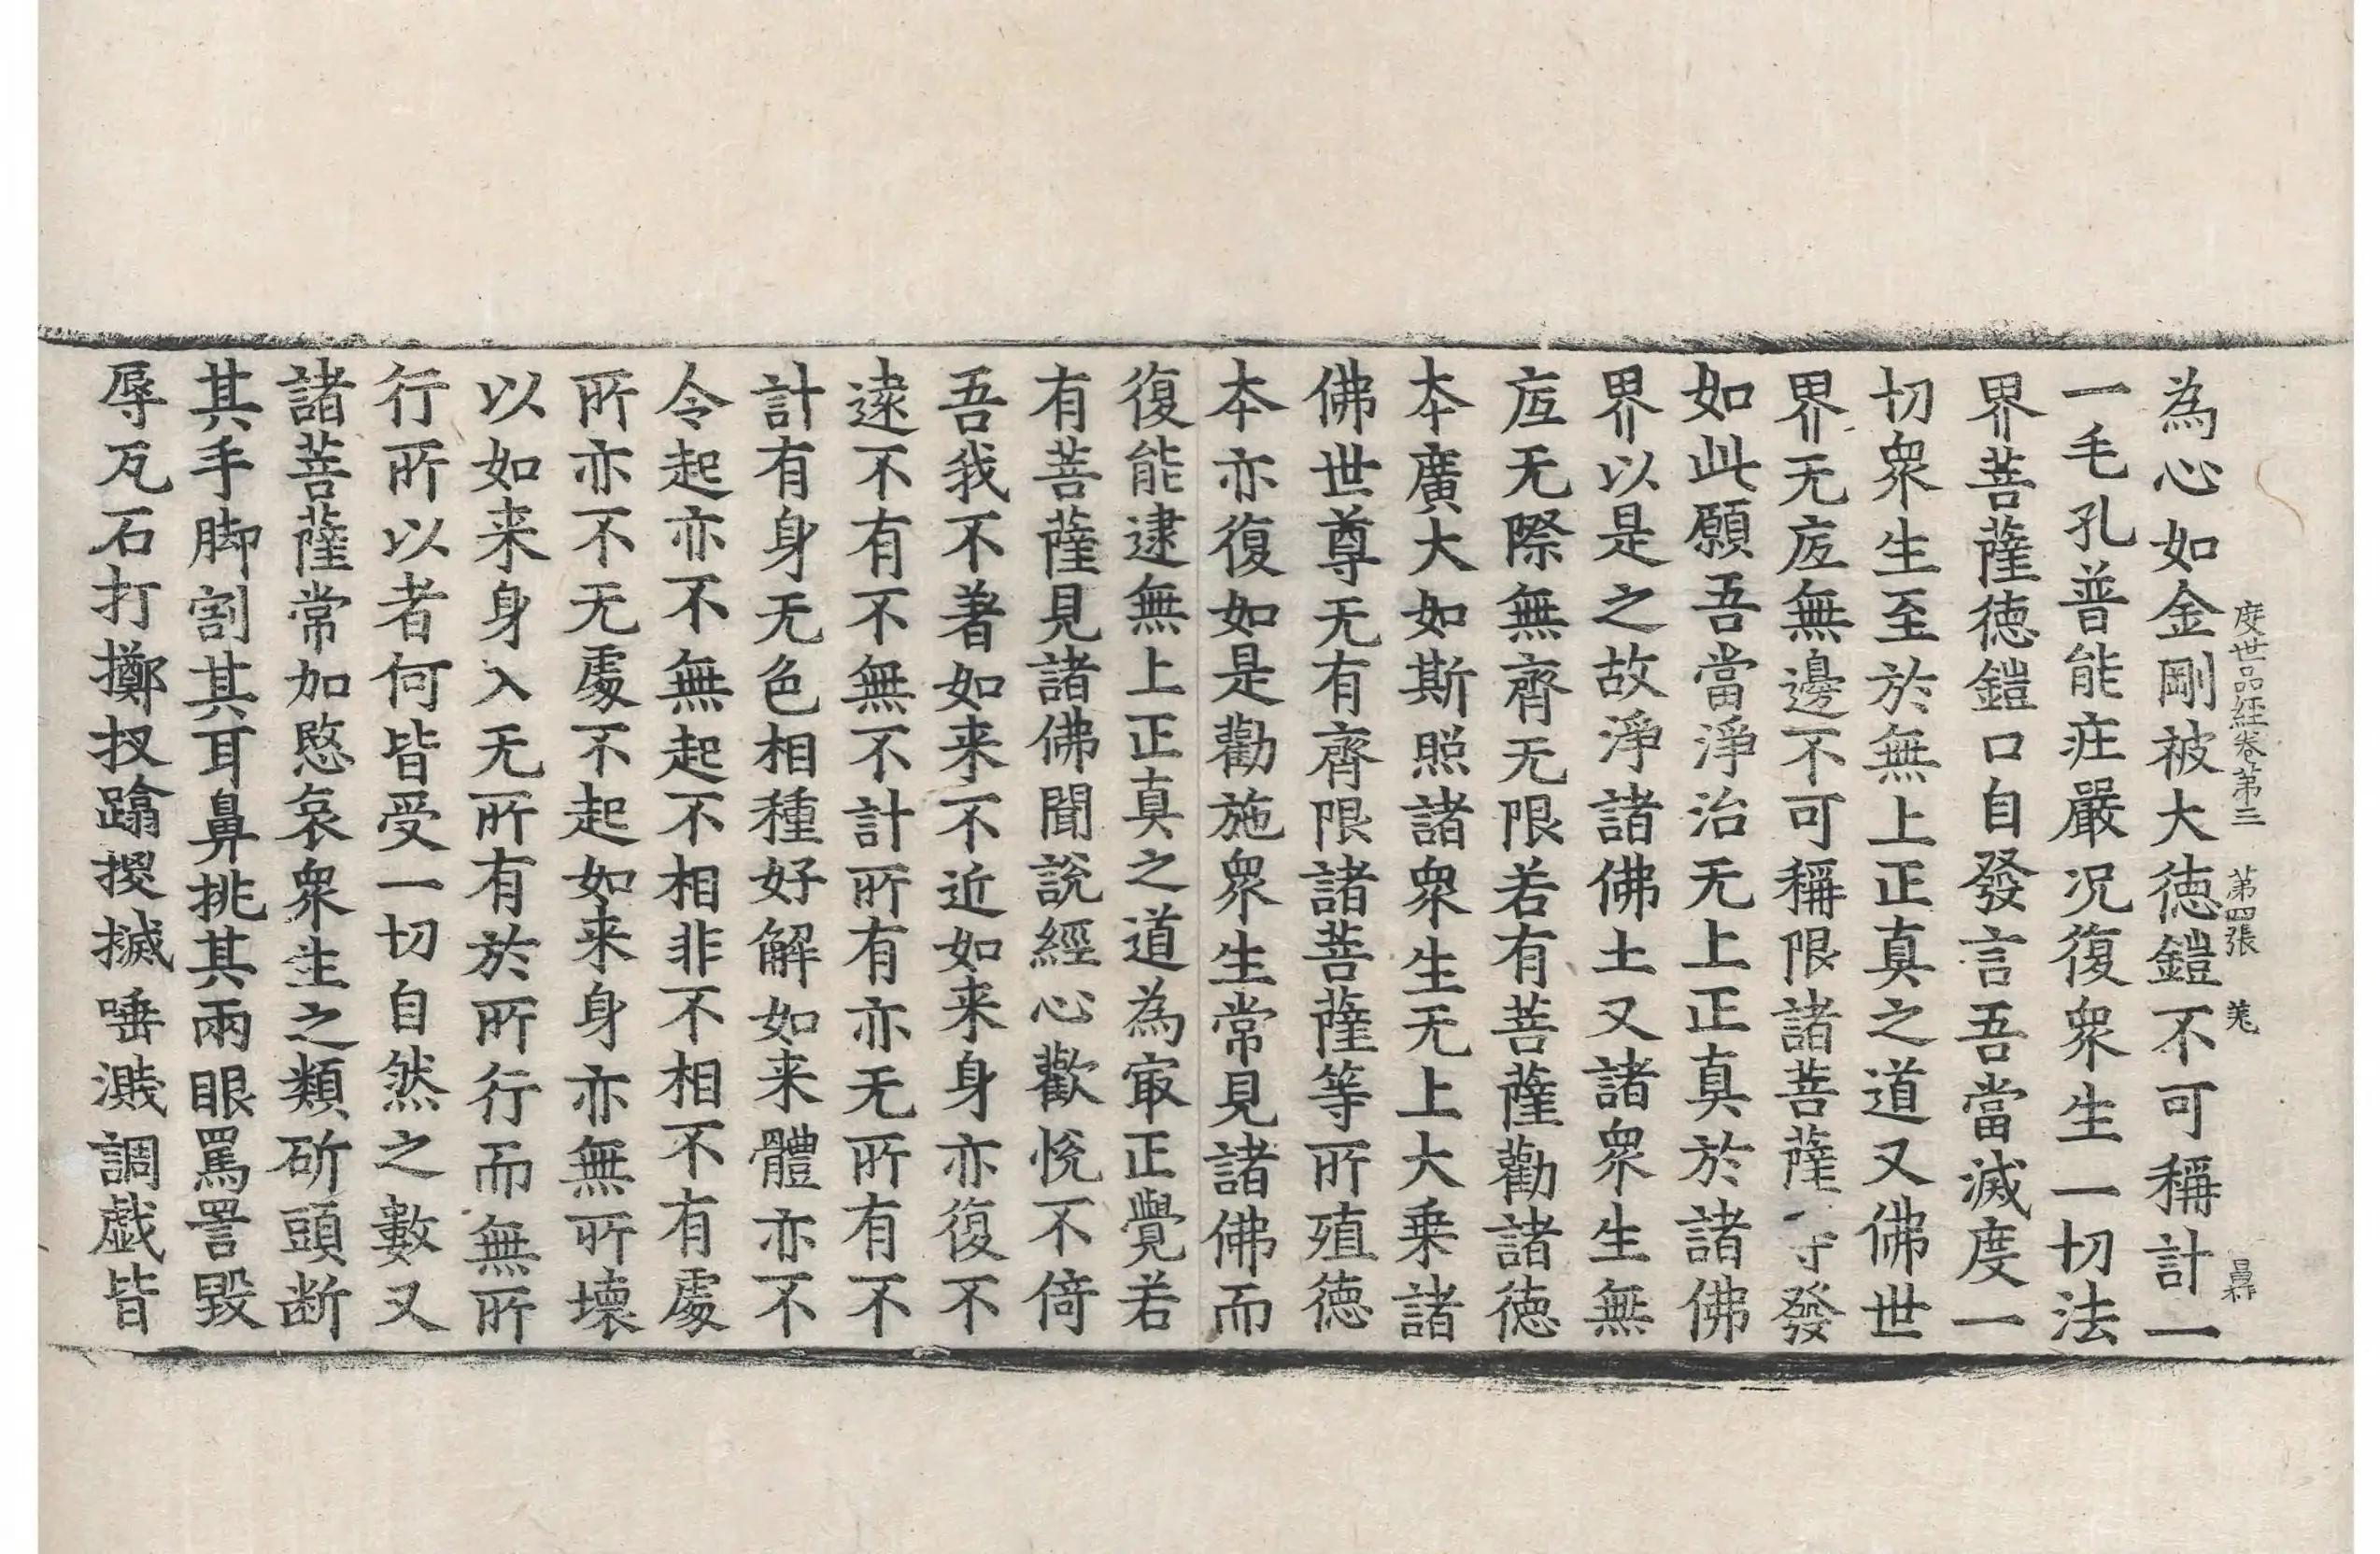 度世品経巻第三 第四張
為心如金剛被大德鎧不可稱計一
一毛孔普能疰嚴況復衆生一切法
界菩薩德鎧口自發言吾當滅度一
切衆生至於無上正真之道又佛世
界无㡳無邊不可稱限諸菩薩等發
如此願吾當淨治无上正真於諸佛
界以是之故淨諸佛土又諸衆生無
㡳无際無齊无限若有菩薩勸諸德
本廣大如斯照諸衆生无上大乗諸
佛世尊无有齊限諸菩薩等所殖德
本亦復如是勸施衆生常見諸佛而
復能逮無上正真之道為㝡正覺若
有菩薩見諸佛聞說經心歡悅不倚
吾我不著如来不近如来身亦復不
逺不有不無不計所有亦无所有不
計有身无色相種好解如来體亦不
令起亦不無起不相非不相不有處
所亦不无處不起如来身亦無所壊
以如来身入无所有於所行而無所
行所以者何皆受一切自然之數又
諸菩薩常加愍哀衆生之類斫頭断
其手脚割其耳鼻挑其兩眼罵詈毀
辱瓦石打擲扠蹹摱搣唾濺調戯皆